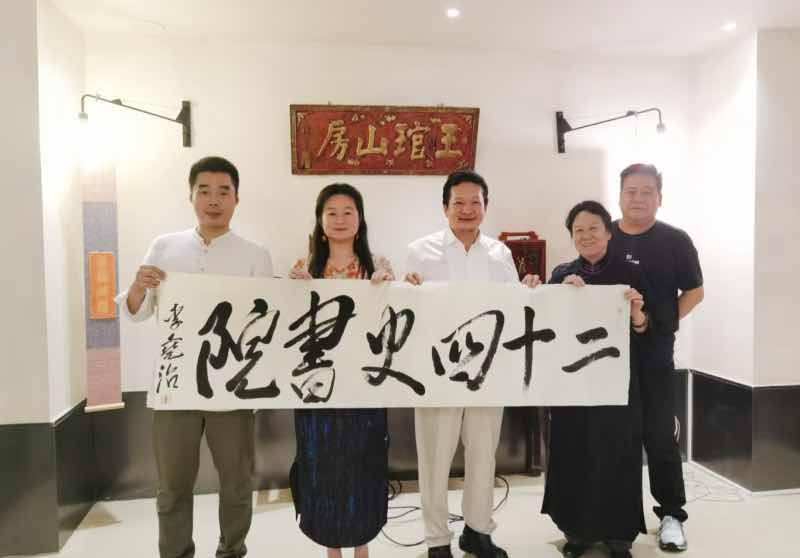 王琯山房
二十四史書院
李尧治